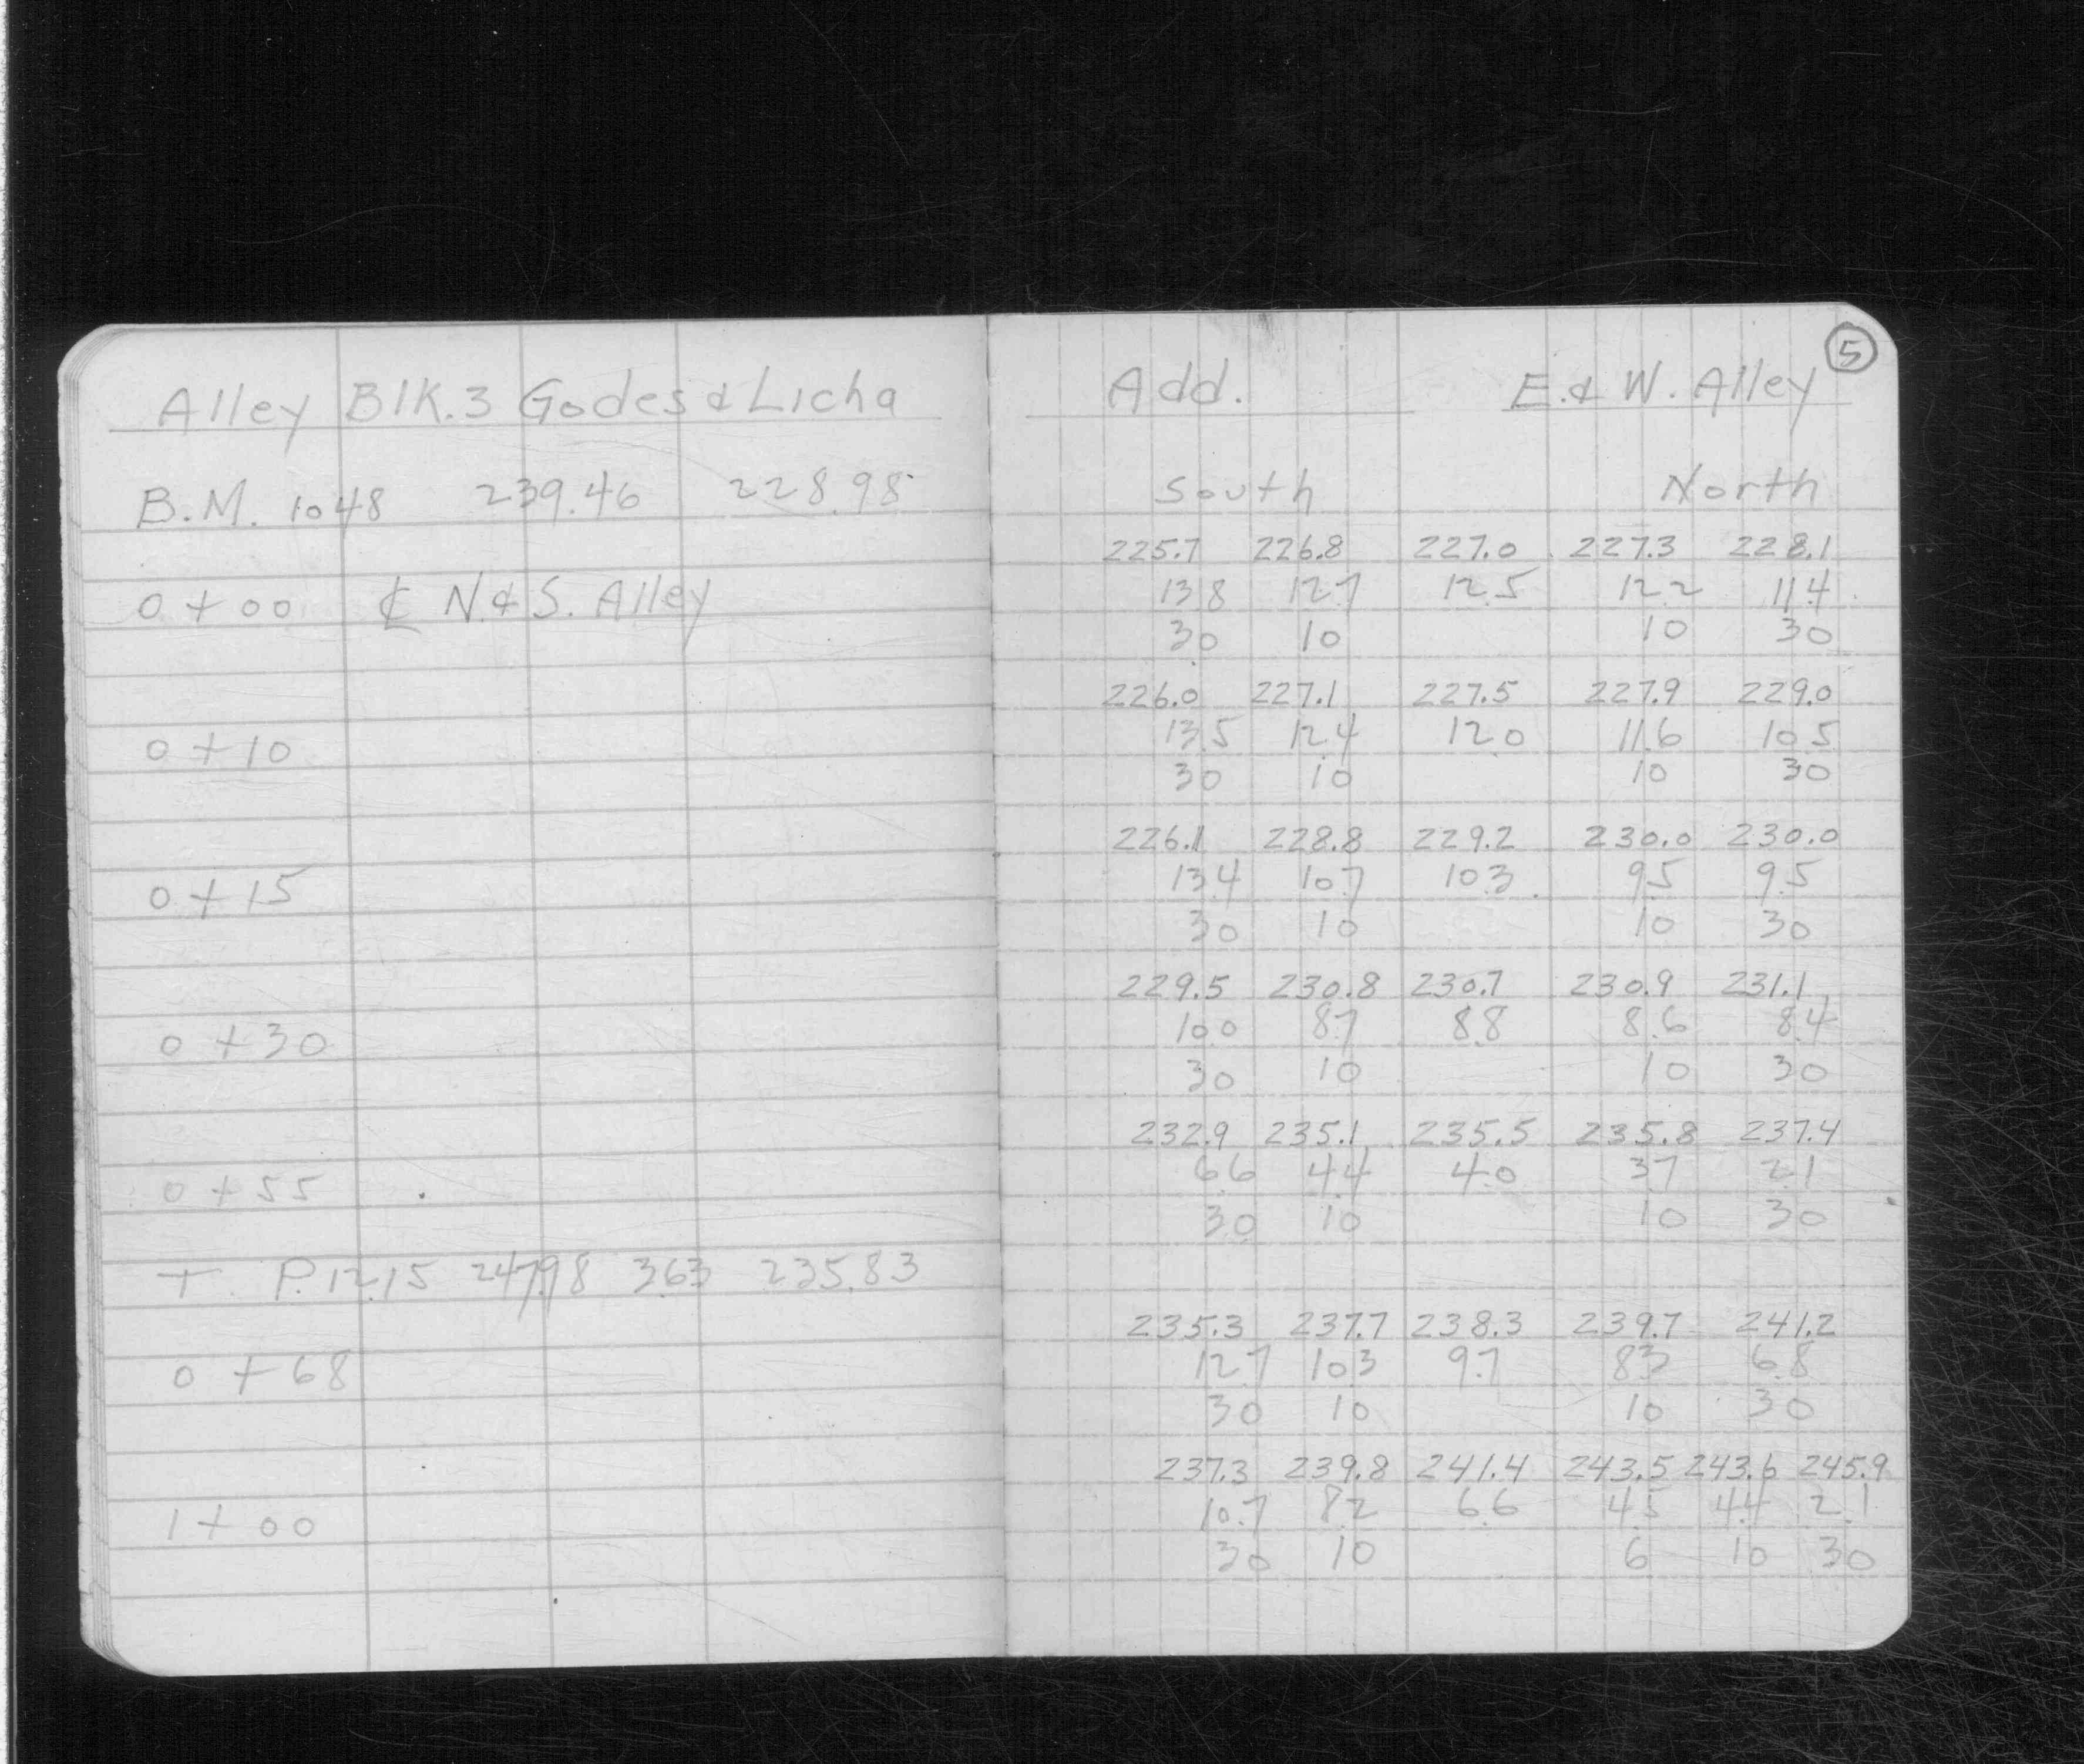 5
Alley Blk. 3 Godes & Licha Add. E. & W. Alley
B.M. 10 48 239.46 228.98 South North
225.7 226.8 227.0 227.3 228.1
0 + 00 ℄ N. & S. Alley 13.8 12.7 12.5 12.2 11.4
30 10 10 30
226.0 227.1 227.5 227.9 229.0
0 + 10 13.5 12.4 12.0 11.6 10.5
30 10 10 30
226.1 228.8 229.2 230.0 230.0
0 + 15 13.4 10.7 10.3 9.5 9.5
30 10 10 30
229.5 230.8 230.7 230.9 231.1
0 + 30 10.0 8.7 8.8 8.6 8.4
30 10 10 30
232.9 235.1 235.5 235.8 237.4
0 + 55 6.6 4.4 4.0 3.7 2.1
30 10 10 30
T. P. 12.15 247.98 3.63 235.83
235.3 237.7 238.3 239.7 241.2
0 + 68 12.7 10.3 9.7 8.3 6.8
30 10 10 30
237.3 239.8 241.4 243.5 243.6 245.9
1 + 00 10.7 8.2 6.6 4.5 4.4 2.1
30 10 6 10 30